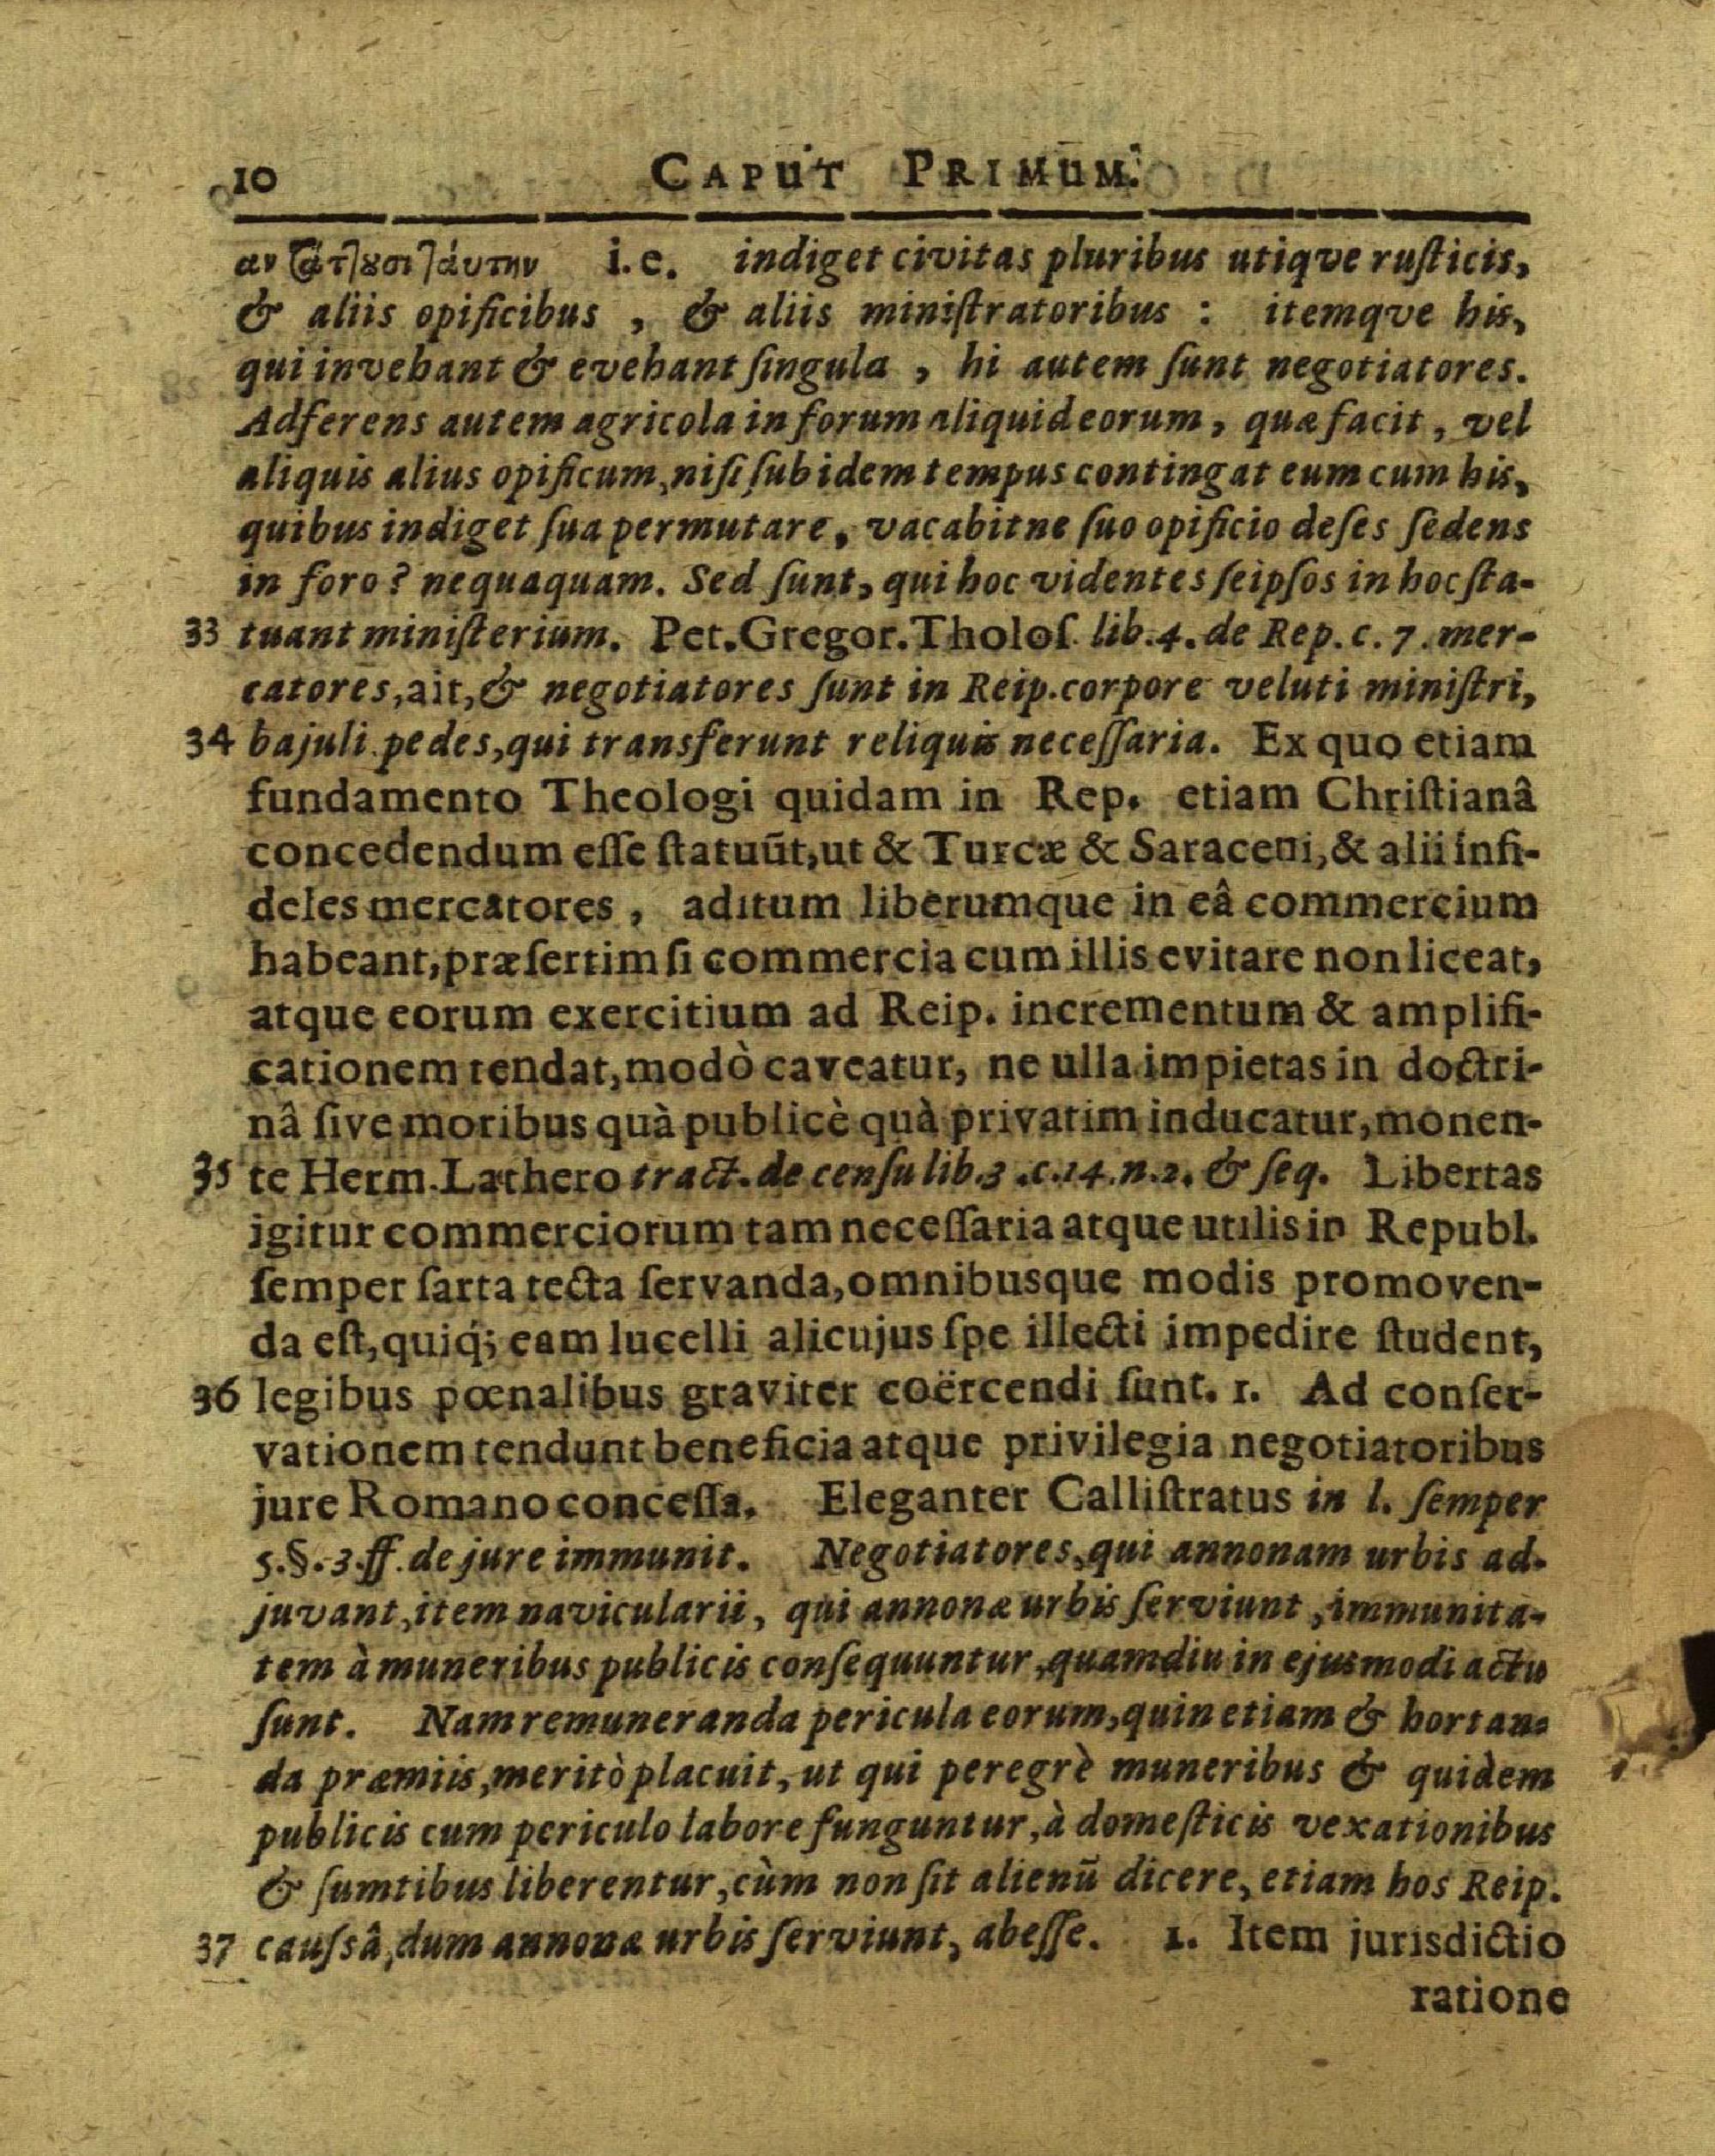 10 CAPUT PRIMUM.
i.e. indiget civitas pluribus utiqve ruſticis,
& aliis opificibus , & aliis miniſtratoribus : itemqve his,
qui invehant & evehant ſingula , hi autem ſunt negotiatores.
Adferens autem agricola in forum aliquid eorum, quæ facit, vel
aliquis alius opificum, niſi ſub idem tempus contingat eum cum his,
quibus indiget ſua permutare, vacabitne ſuo opificio deſes ſedens
in foro? nequaquam. Sed ſunt, qui hoc videntes ſeipſos in hoc ſta-
33 tuant miniſterium. Pet. Gregor. Tholoſ. lib. 4. de Rep. c. 7. mer-
catores, ait, & negotiatores ſunt in Reip. corpore veluti miniſtri,
34 bajuli pedes, qui transferunt reliquis neceſſaria. Ex quo etiam
fundamento Theologi quidam in Rep. etiam Chriſtianâ
concedendum eſſe ſtatuūt, ut & Turcæ & Saraceni, & alii infi-
deles mercatores , aditum liberumque in eâ commercium
habeant, præſertim ſi commercia cum illis evitare non liceat,
atque eorum exercitium ad Reip. incrementum & amplifi-
cationem tendat, modò caveatur, ne ulla impietas in doctri-
nâ ſive moribus quà publicè quà privatim inducatur, monen-
35 te Herm. Lathero tract. de cenſu lib. 3. c. 14. n. 2. & ſeq. Libertas
igitur commerciorum tam neceſſaria atque utilis in Republ.
ſemper ſarta tecta ſervanda, omnibusque modis promoven-
da eſt, quiq́; eam lucelli alicujus ſpe illecti impedire ſtudent,
36 legibus pœnalibus graviter coërcendi ſunt. 1. Ad conſer-
vationem tendunt beneficia atque privilegia negotiatoribus
jure Romano conceſſa. Eleganter Calliſtratus in l. ſemper
5. §. 3. ff. de jure immunit. Negotiatores, qui annonam urbis ad-
juvant, item navicularii, qui annonæ urbis ſerviunt, immunita-
tem à muneribus publicis conſequuntur, quamdiu in ejusmodi actu
ſunt. Nam remuneranda pericula eorum, quin etiam & hortan-
da præmiis, meritò placuit, ut qui peregrè muneribus & quidèm
publicis cum periculo labore funguntur, à domeſticis vexationibus
& ſumtibus liberentur, cùm non ſit alienū dicere, etiam hos Reip.
37 cauſsâ, dum annonæ urbis ſerviunt, abeſſe. 1. Item jurisdictio
ratione